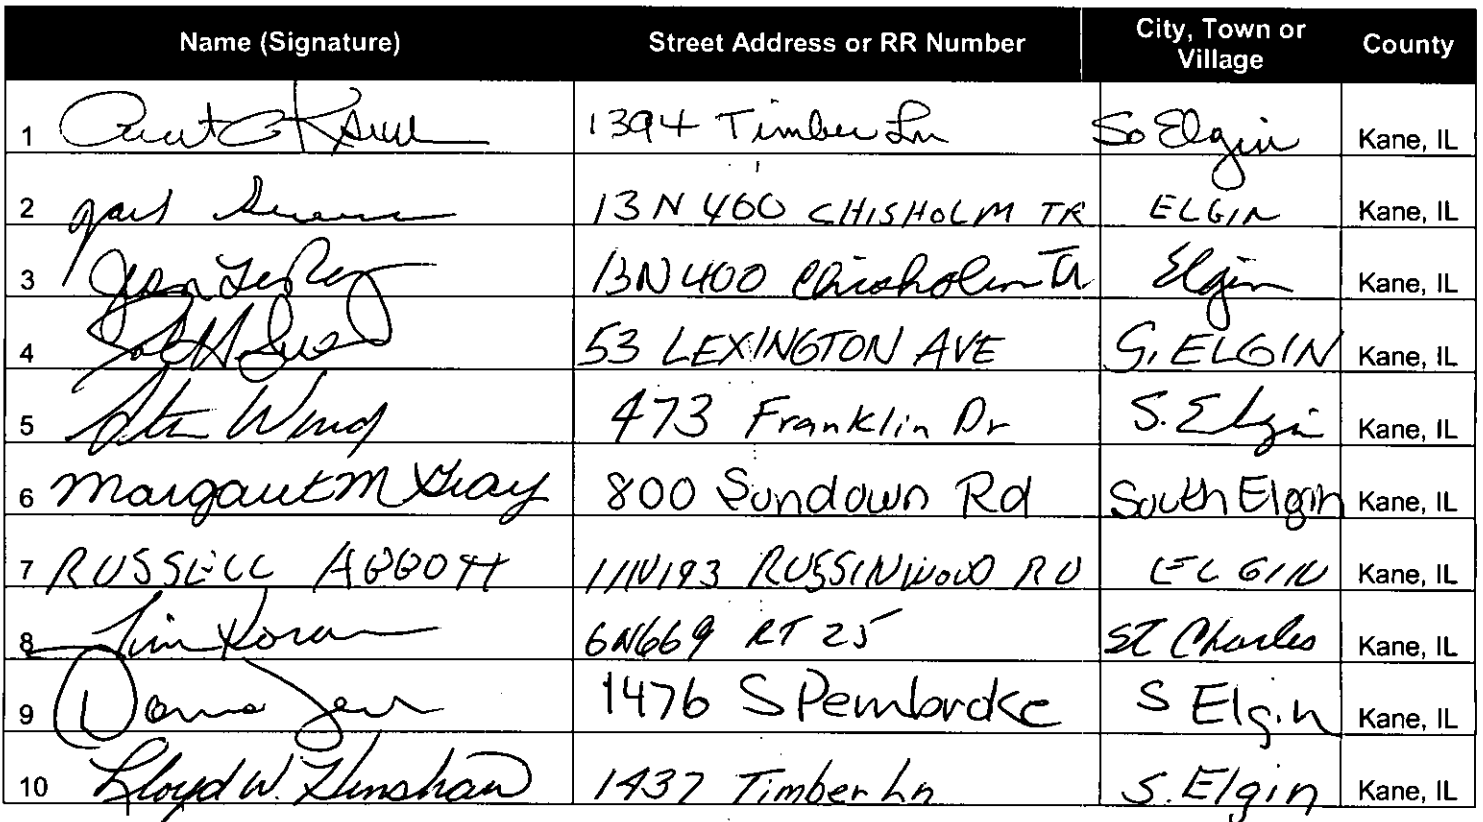 Name (Signature) Street Address or RR Number City, Town or Village County
1 1394 Timber Ln So Elgin Kane, IL
2 13N400 CHISHOLM TR ELGIN Kane, IL
3 Jean LeRoy 13N400 Chisholm Tr Elgin Kane, IL
4 53 LEXINGTON AVE S. ELGIN Kane, IL
5 473 Franklin Dr S. Elgin Kane, IL
6 Margaret M Gray 800 Sundown Rd South Elgin Kane, IL
7 RUSSELL ABBOTT 11N193 RUSSINWOOD RD ELGIN Kane, IL
8 Jim 6N669 RT 25 St Charles Kane, IL
9 Donna 1476 S Pembroke S Elgin Kane, IL
10 Lloyd W. Hinshaw 1437 Timber Ln S. Elgin Kane, IL